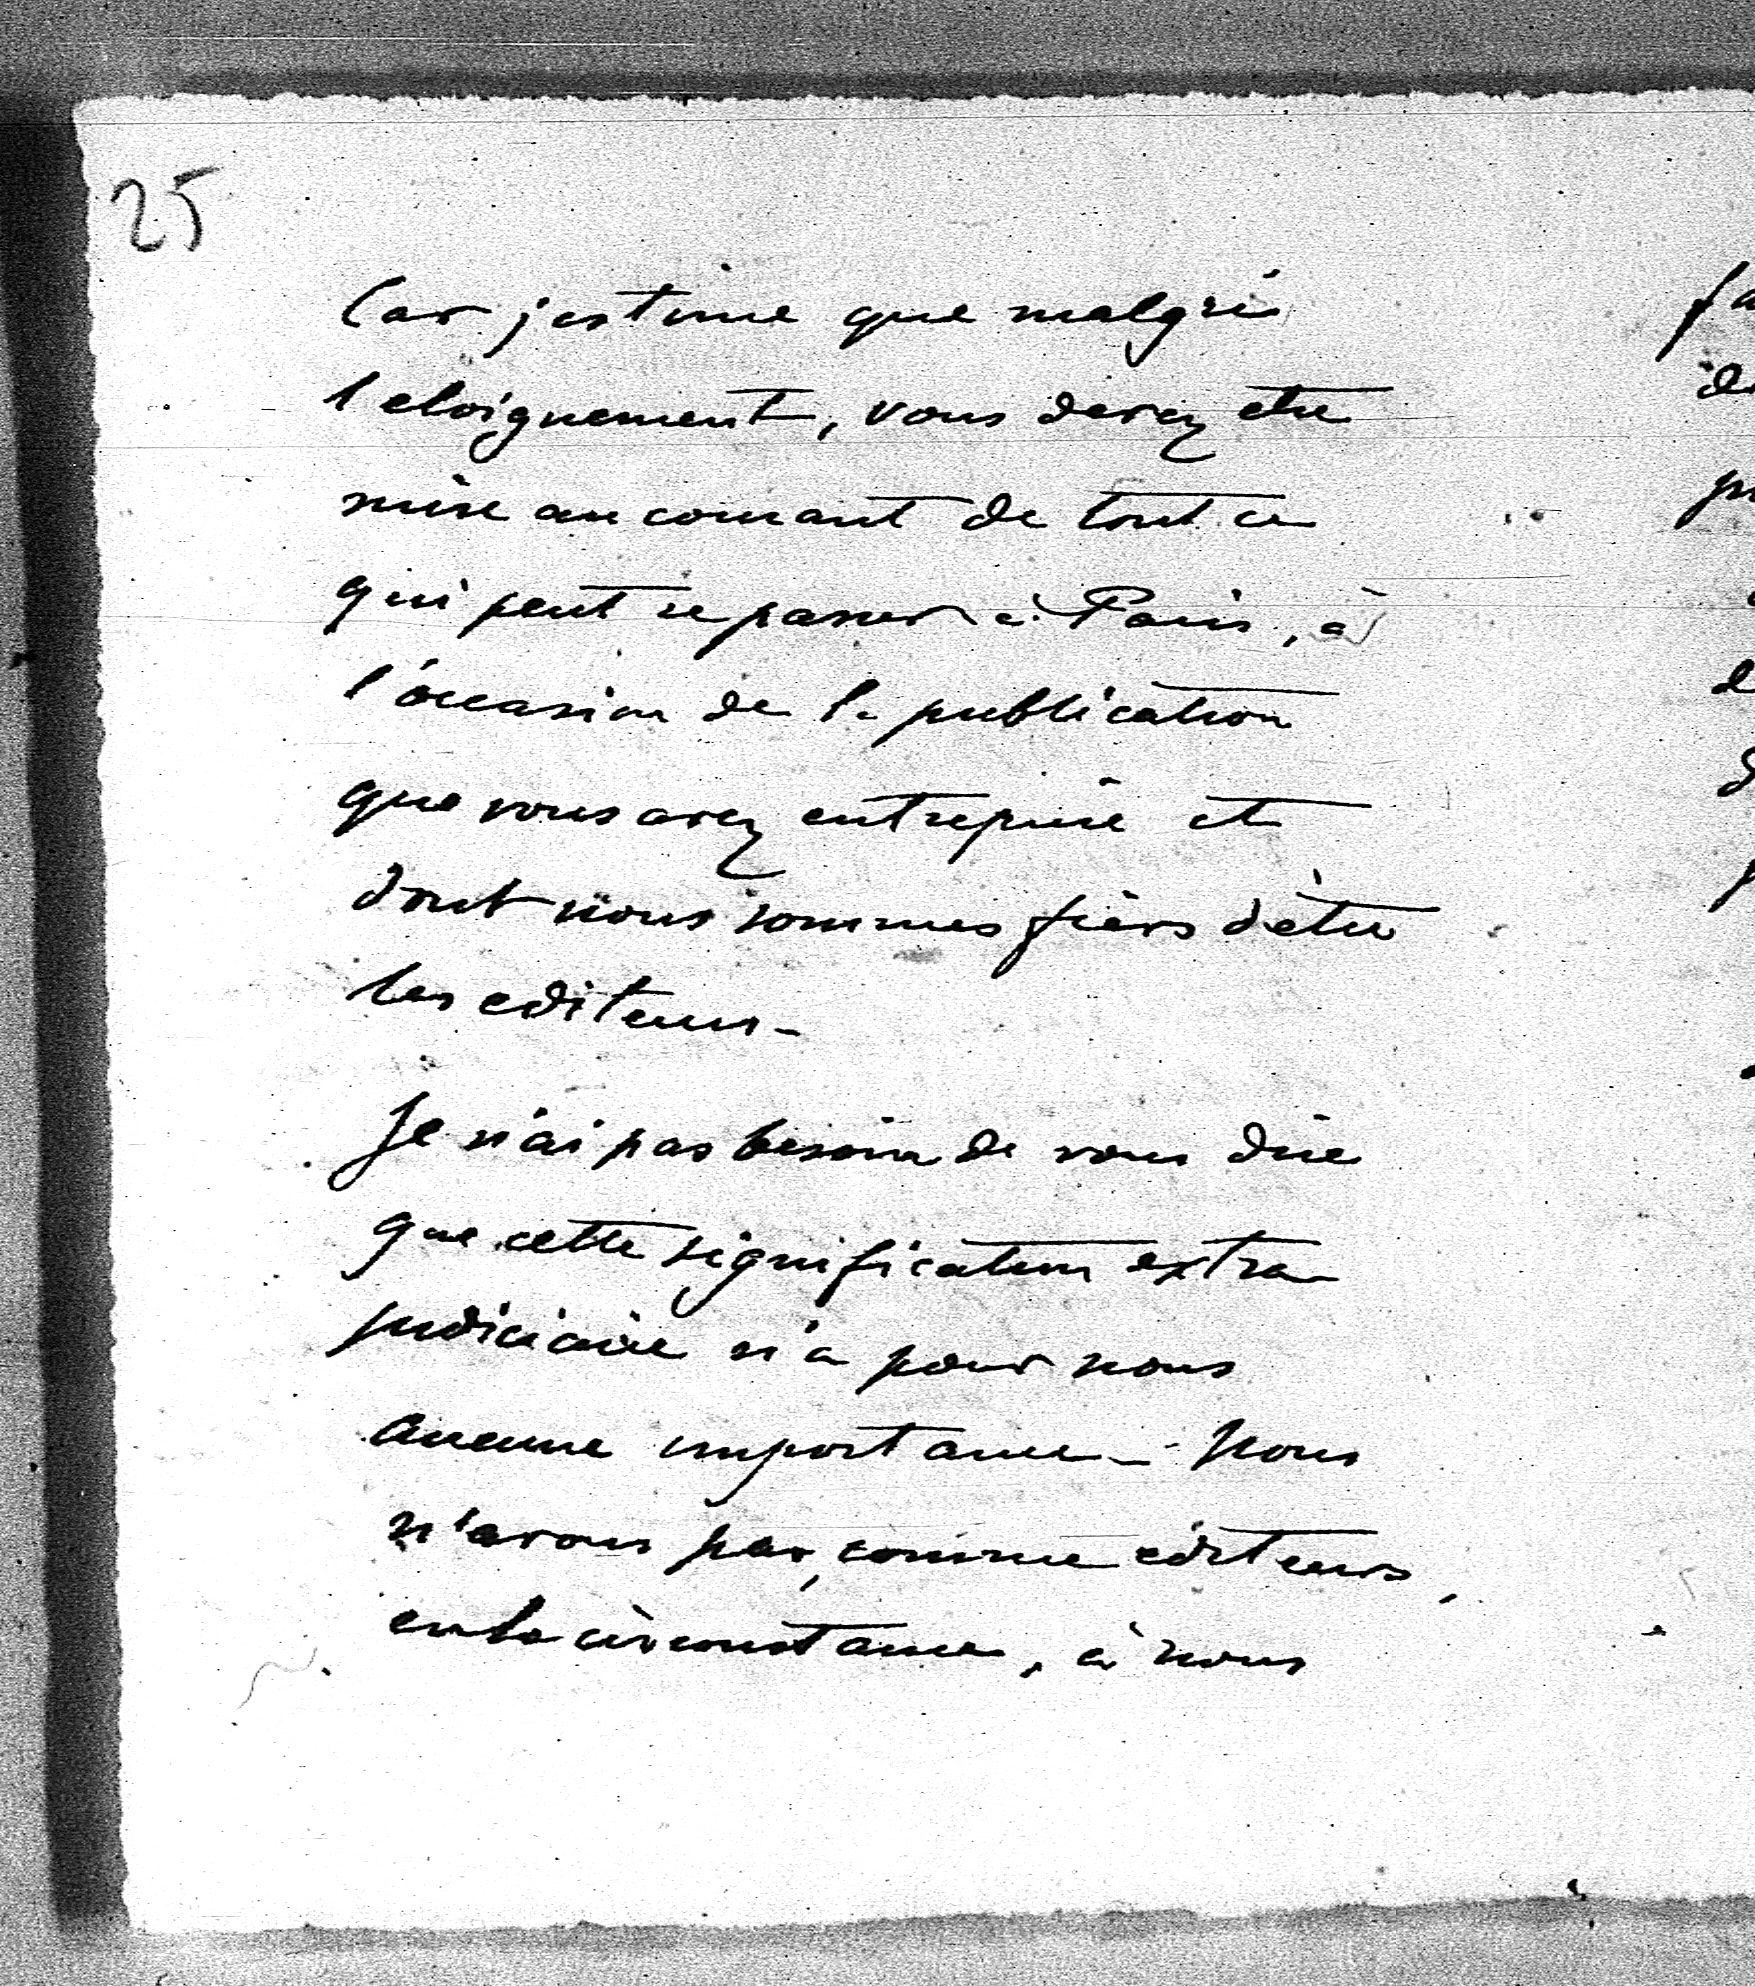 25
Car j'estime que malgré
l'eloignement, vous devez etre
mise au courant de tout ce
qui peut se passer à Paris, à
l'occasion de la publication
que vous avez entreprise et
dont nous sommes fiers d'être
les editeurs -
Je n'ai pas besoin de vous dire
que cette signification extra
judiciaire n'a pour nous
aucune importance - Nous
n'avons pas, comme éditeurs,
en la circonstance, à nous